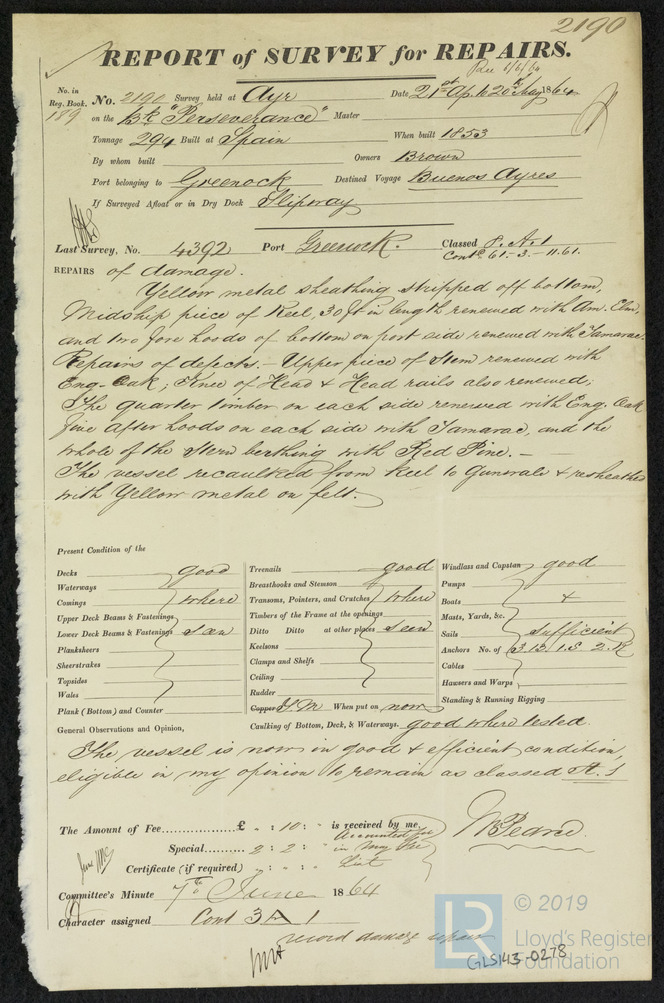 2190
REPORT of SURVEY for REPAIRS.
Rec 6/6/64
No. in Reg. Book. 189
No. 2190 Survey held at Ayr Date 21st Apl to 20th May 1864
on the Bk "Perseverance" Master
Tonnage 294 Built at Spain When built 1853
By whom built Owners Brown
Port belonging to Greenock Destined Voyage Buenos Ayres
If Surveyed Afloat or in Dry Dock Slipway
Last Survey, No. 4392 Port Greenock. Classed A.1
Contd 61-3-11.61.
REPAIRS of damage.
Yellow metal sheathing stripped off bottom,
Midship piece of Keel, 30 ft in length renewed with Am. Elm,
and two fore hoods of bottom on port side renewed with Tamarac.
Repairs of defects. - Upper piece of Stem renewed with
Eng. Oak; Knee of Head & Head rails also renewed;
The quarter timber on each side renewed with Eng. Oak
five after hoods on each side with Tamarac, and the
whole of the Stern berthing with Red Pine. -
The vessel recaulked from Keel to Gunwale & resheathed
with Yellow metal on felt.
Present Condition of the
Decks good
Waterways
Comings where
Upper Deck Beams & Fastenings
Lower Deck Beams & Fastenings seen
Planksheers
Sheerstrakes
Topsides
Wales
Plank (Bottom) and Counter
Treenails good
Breasthooks and Stemson
Transoms, Pointers, and Crutches where
Timbers of the Frame at the openings
Ditto Ditto at other places seen
Keelsons
Clamps and Shelfs
Ceiling
Rudder
Copper Y.M. When put on now
Windlass and Capstan good
Pumps
Boats &
Masts, Yards, &c.
Sails sufficient
Anchors No. of 3.B. 1.S 2.K
Cables
Hawsers and Warps
Standing & Running Rigging
General Observations and Opinion, Caulking of Bottom, Deck, & Waterways. good where tested.
The vessel is now in good & efficient condition,
eligible in my opinion to remain as classed A.1
The Amount of Fee £ " : 10 : " is received by me,
Special 2 : 2 : " Accounted for in my Fee List
Certificate (if required) " : " : "
Committee's Minute 7th June 1864
Character assigned Cont 3A 1
record damage repairs
GLS143-0278
LR
© 2019
Lloyd's Register
Foundation